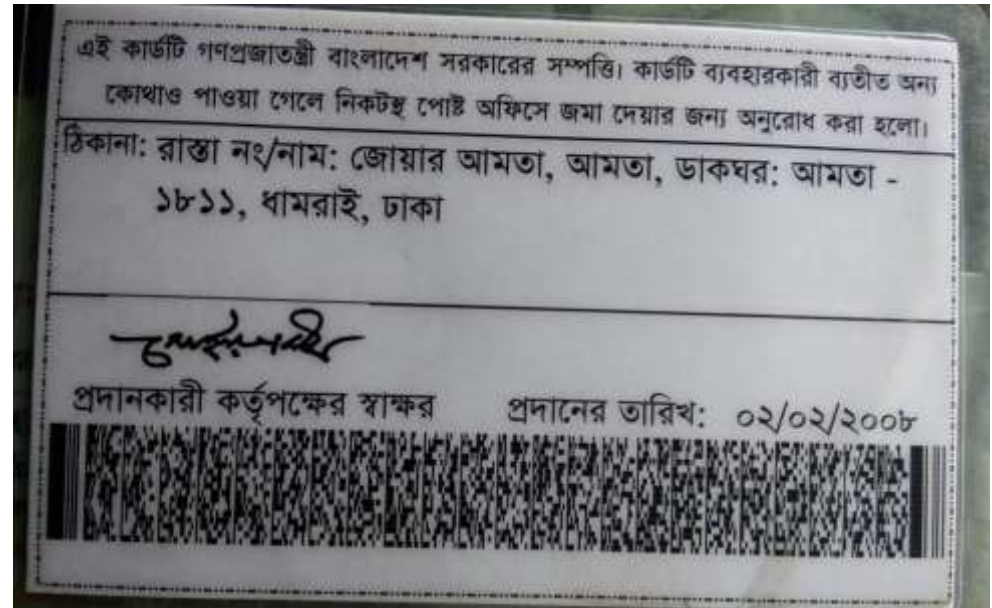 এই কার্ডটি গণপ্রজাতন্ত্রী বাংলাদেশ সরকারের সম্পত্তি। কার্ডটি ব্যবহারকারী ব্যতীত অন্য
কোথাও পাওয়া গেলে নিকটস্থ পোষ্ট অফিসে জমা দেয়ার জন্য অনুরোধ করা হলো।
ঠিকানা: রাস্তা নং/নাম: জোয়ার আমতা, আমতা, ডাকঘর: আমতা -
১৮১১, ধামরাই, ঢাকা
প্রদানকারী কর্তৃপক্ষের স্বাক্ষর প্রদানের তারিখ: ০২/০২/২০০৮